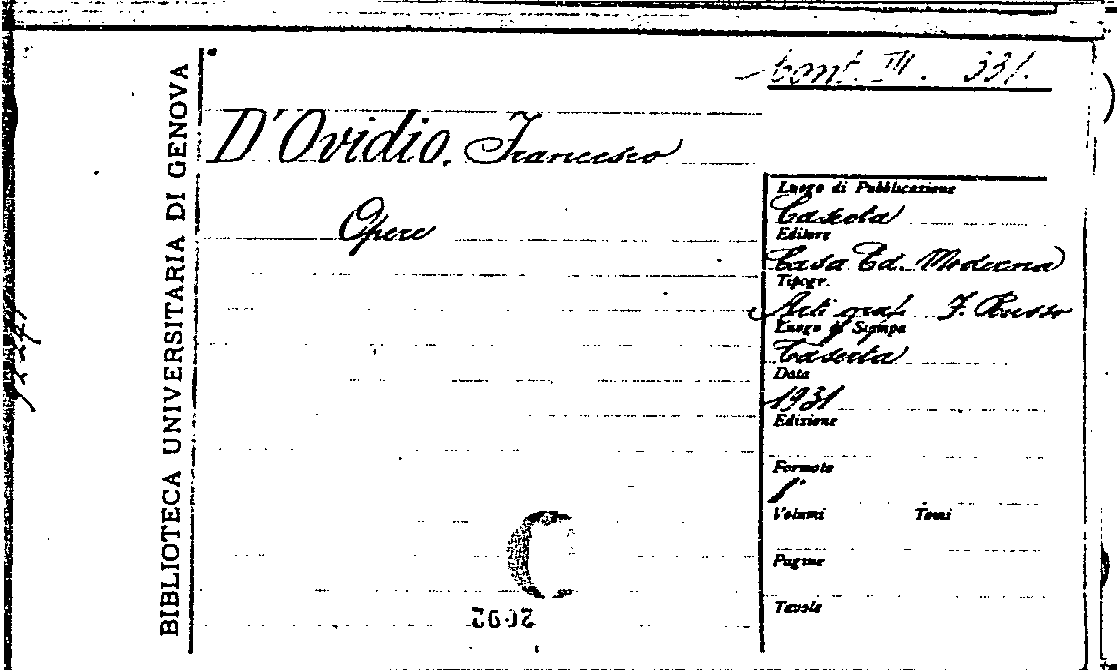 Cont. III. 331.
BIBLIOTECA UNIVERSITARIA DI GENOVA
D'Ovidio, Francesco
Opere
Luogo di Pubblicazione
Caserta
Editore
Casa Ed. Moderna
Tipogr.
Arti graf. F. Russo
Luogo di Stampa
Caserta
Data
1931
Edizione
Formato
Volumi Tomi
Pagine
Tavole